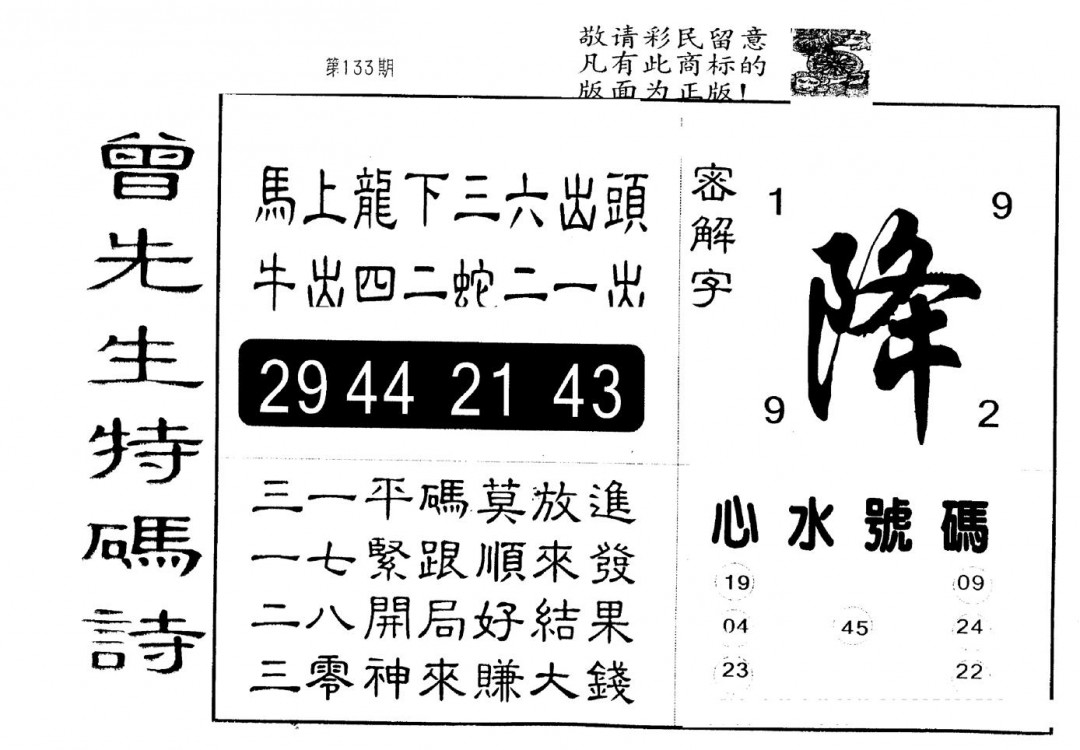 第133期
敬请彩民留意
凡有此商标的
版面为正版!
曾先生特碼詩
馬上龍下三六出頭
牛出四二蛇二一出
29 44 21 43
三一平碼莫放進
一七緊跟順來發
二八開局好結果
三零神來賺大錢
密解字
1 9
降
9 2
心水號碼
19 09
04 45 24
23 22